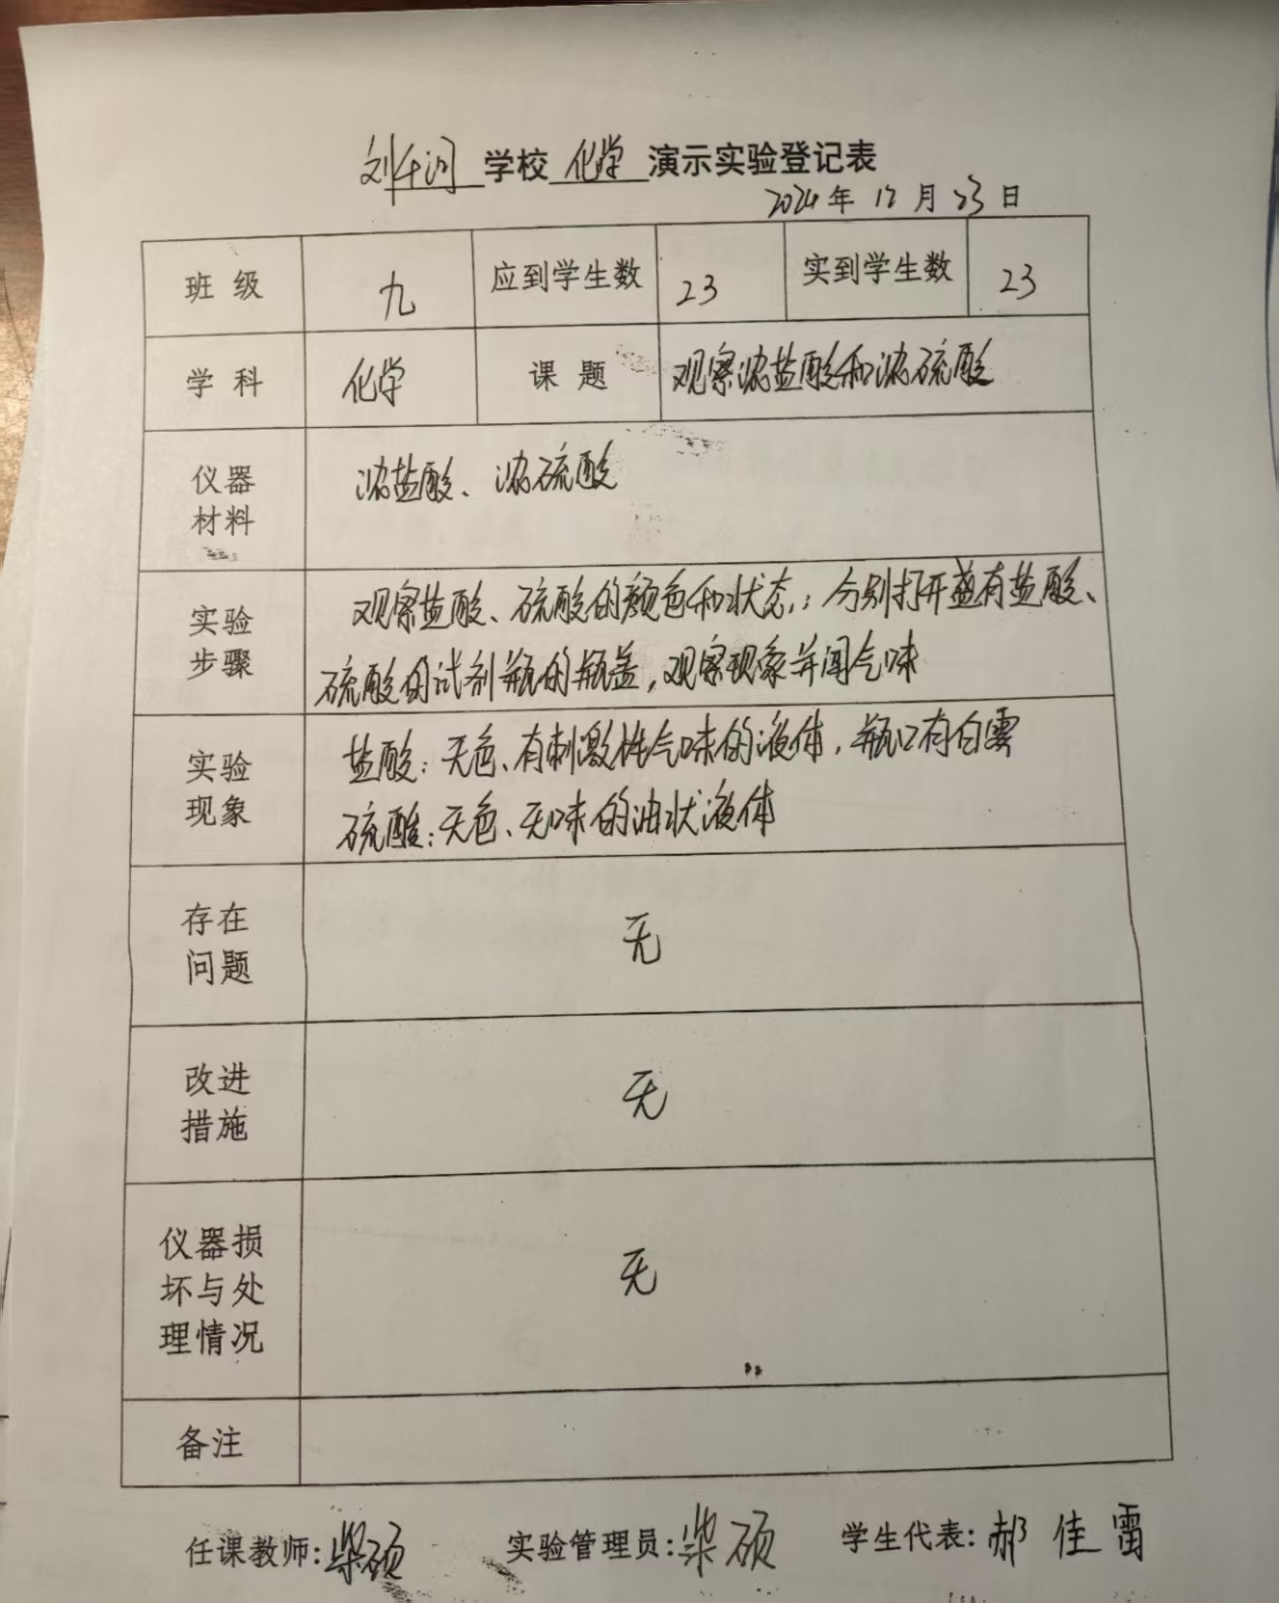 刘午河 学校 化学 演示实验登记表
2024年 12月 23日
班级 九 应到学生数 23 实到学生数 23
学科 化学 课题 观察浓盐酸和浓硫酸
仪器
材料
浓盐酸、浓硫酸
实验
步骤
观察盐酸、硫酸的颜色和状态;分别打开盛有盐酸、
硫酸的试剂瓶的瓶盖,观察现象并闻气味
实验
现象
盐酸:无色、有刺激性气味的液体,瓶口有白雾
硫酸:无色、无味的油状液体
存在
问题
无
改进
措施
无
仪器损
坏与处
理情况
无
备注
任课教师:柴硕 实验管理员:柴硕 学生代表:郝佳雷